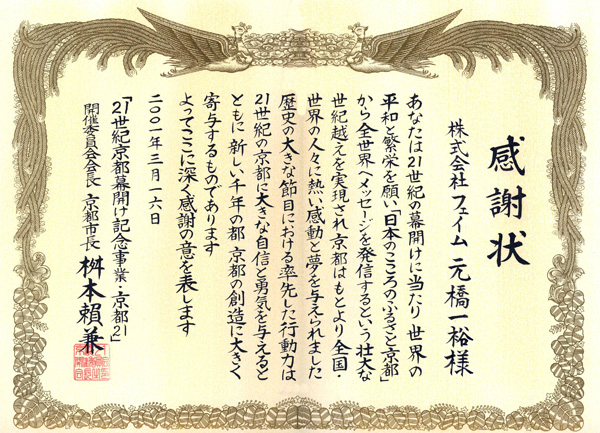 感謝状
株式会社 フェイム 元橋一裕様
あなたは21世紀の幕開けに当たり 世界の
平和と繁栄を願い「日本のこころのふるさと京都」
から全世界へメッセージを発信するという壮大な
世紀越えを実現され 京都はもとより全国・
世界の人々に熱い感動と夢を与えられました
歴史の大きな節目における率先した行動力は
21世紀の京都に大きな自信と勇気を与えると
ともに 新しい千年の都 京都の創造に大きく
寄与するものであります
よってここに深く感謝の意を表します
二〇〇一年三月一六日
「21世紀京都幕開け記念事業・京都21」
開催委員会会長 京都市長 桝本賴兼